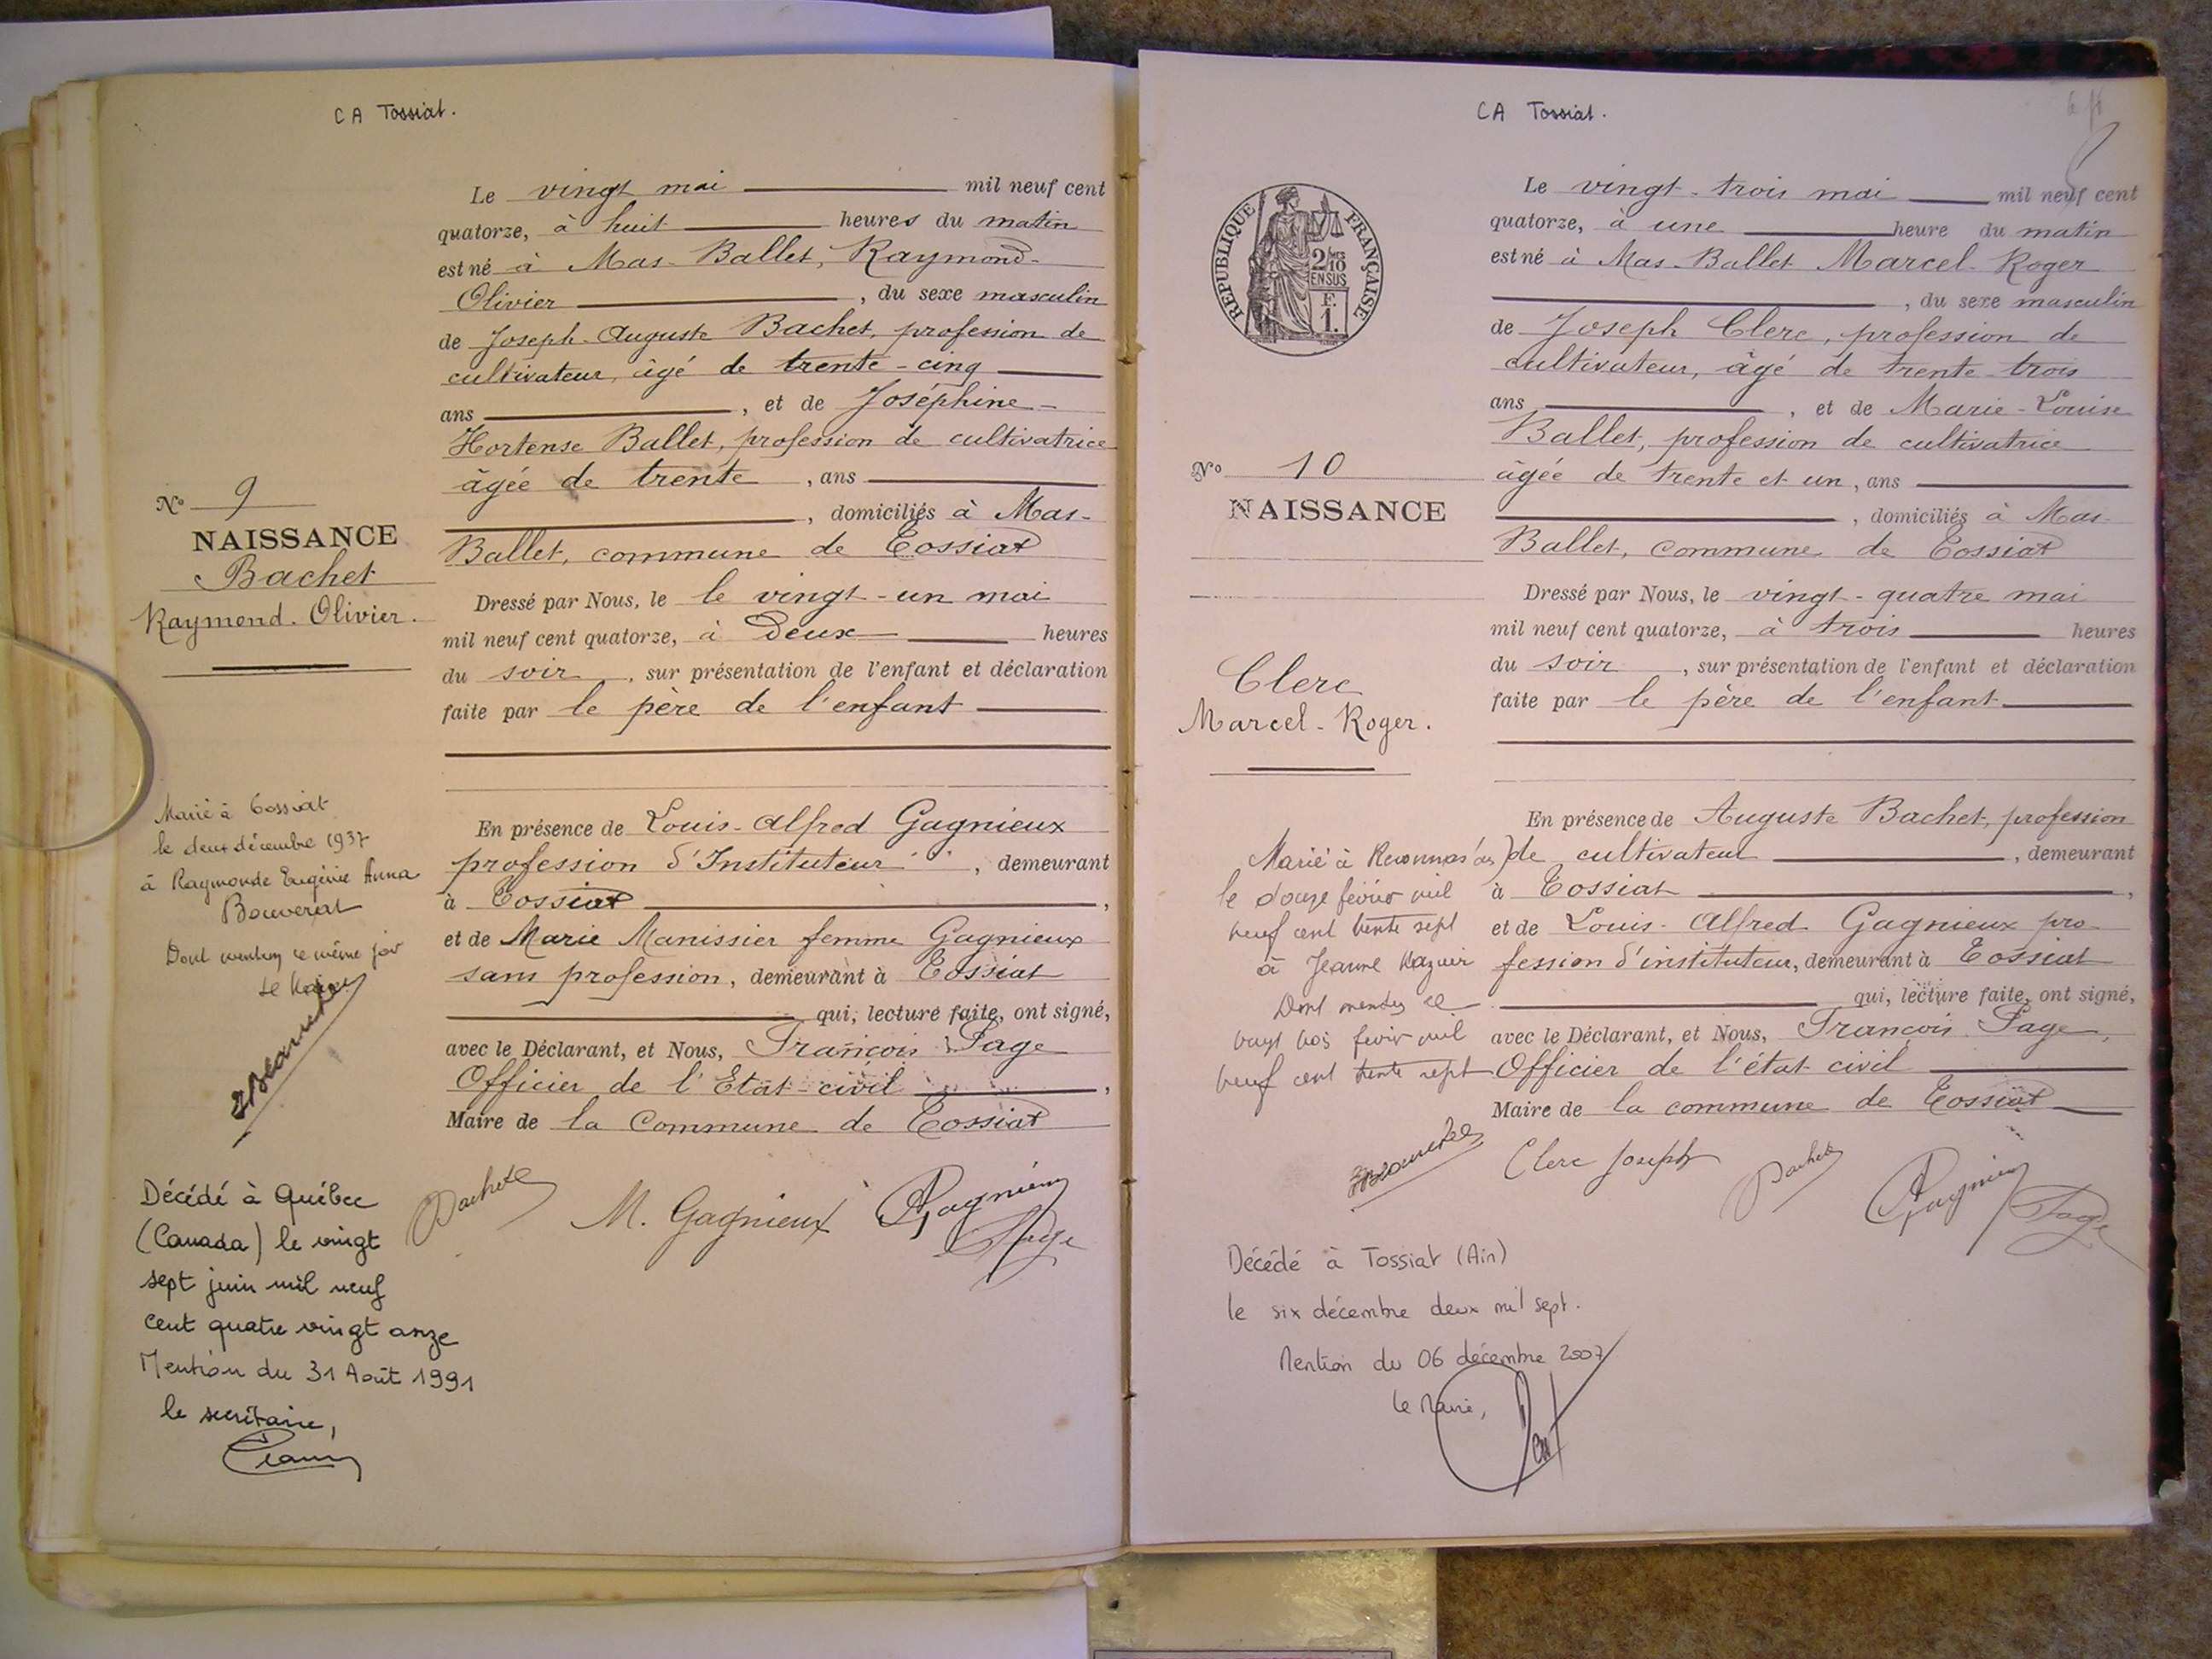 CA Tossiat.
Le vingt mai mil neuf cent
quatorze, à huit heures du matin
est né à Mas-Ballet, Raymond-
Olivier , du sexe masculin
de Joseph-Auguste Bachet, profession de
cultivateur, âgé de trente-cinq
ans , et de Joséphine-
Hortense Ballet, profession de cultivatrice
âgée de trente , ans
, domiciliés à Mas-
Ballet, commune de Tossiat
Dressé par Nous, le le vingt-un mai
mil neuf cent quatorze, à deux heures
du soir , sur présentation de l'enfant et déclaration
faite par le père de l'enfant
En présence de Louis-Alfred Gagnieux
profession d'Instituteur , demeurant
à Tossiat ,
et de Marie Manissier femme Gagnieux
sans profession, demeurant à Tossiat
qui, lecture faite, ont signé,
avec le Déclarant, et Nous, François Page
Officier de l'Etat-civil ,
Maire de la Commune de Tossiat
Bachet
M. Gagnieux
Gagnieux
Page
N° 9
NAISSANCE
Bachet
Raymond-Olivier.
Marié à Tossiat
le deux décembre 1937
à Raymonde Eugénie Anna
Bouverat
Dont mention le même jour
Le Maire
Décédé à Québec
(Canada) le vingt
sept juin mil neuf
cent quatre vingt onze
Mention du 31 Août 1991
le secrétaire,
CA Tossiat.
REPUBLIQUE FRANÇAISE
2/10
EN SUS
F.
1.
Le vingt-trois mai mil neuf cent
quatorze, à une heure du matin
est né à Mas-Ballet Marcel-Roger
, du sexe masculin
de Joseph Clerc, profession de
cultivateur, âgé de trente-trois
ans , et de Marie-Louise
Ballet, profession de cultivatrice
âgée de trente et un, ans
, domiciliés à Mas-
Ballet, commune de Tossiat
Dressé par Nous, le vingt-quatre mai
mil neuf cent quatorze, à trois heures
du soir , sur présentation de l'enfant et déclaration
faite par le père de l'enfant
En présence de Auguste Bachet, profession
de cultivateur , demeurant
à Tossiat ,
et de Louis-Alfred Gagnieux pro-
fession d'instituteur, demeurant à Tossiat
qui, lecture faite, ont signé,
avec le Déclarant, et Nous, François Page,
Officier de l'état-civil
Maire de la commune de Tossiat
Clerc Joseph
Bachet
Gagnieux
Page
N° 10
NAISSANCE
Clerc
Marcel-Roger.
Marié à
le douze février mil
neuf cent trente sept
à Jeanne
Dont mention ce
vingt trois février mil
neuf cent trente sept
Décédé à Tossiat (Ain)
le six décembre deux mil sept.
Mention du 06 décembre 2007
Le Maire,